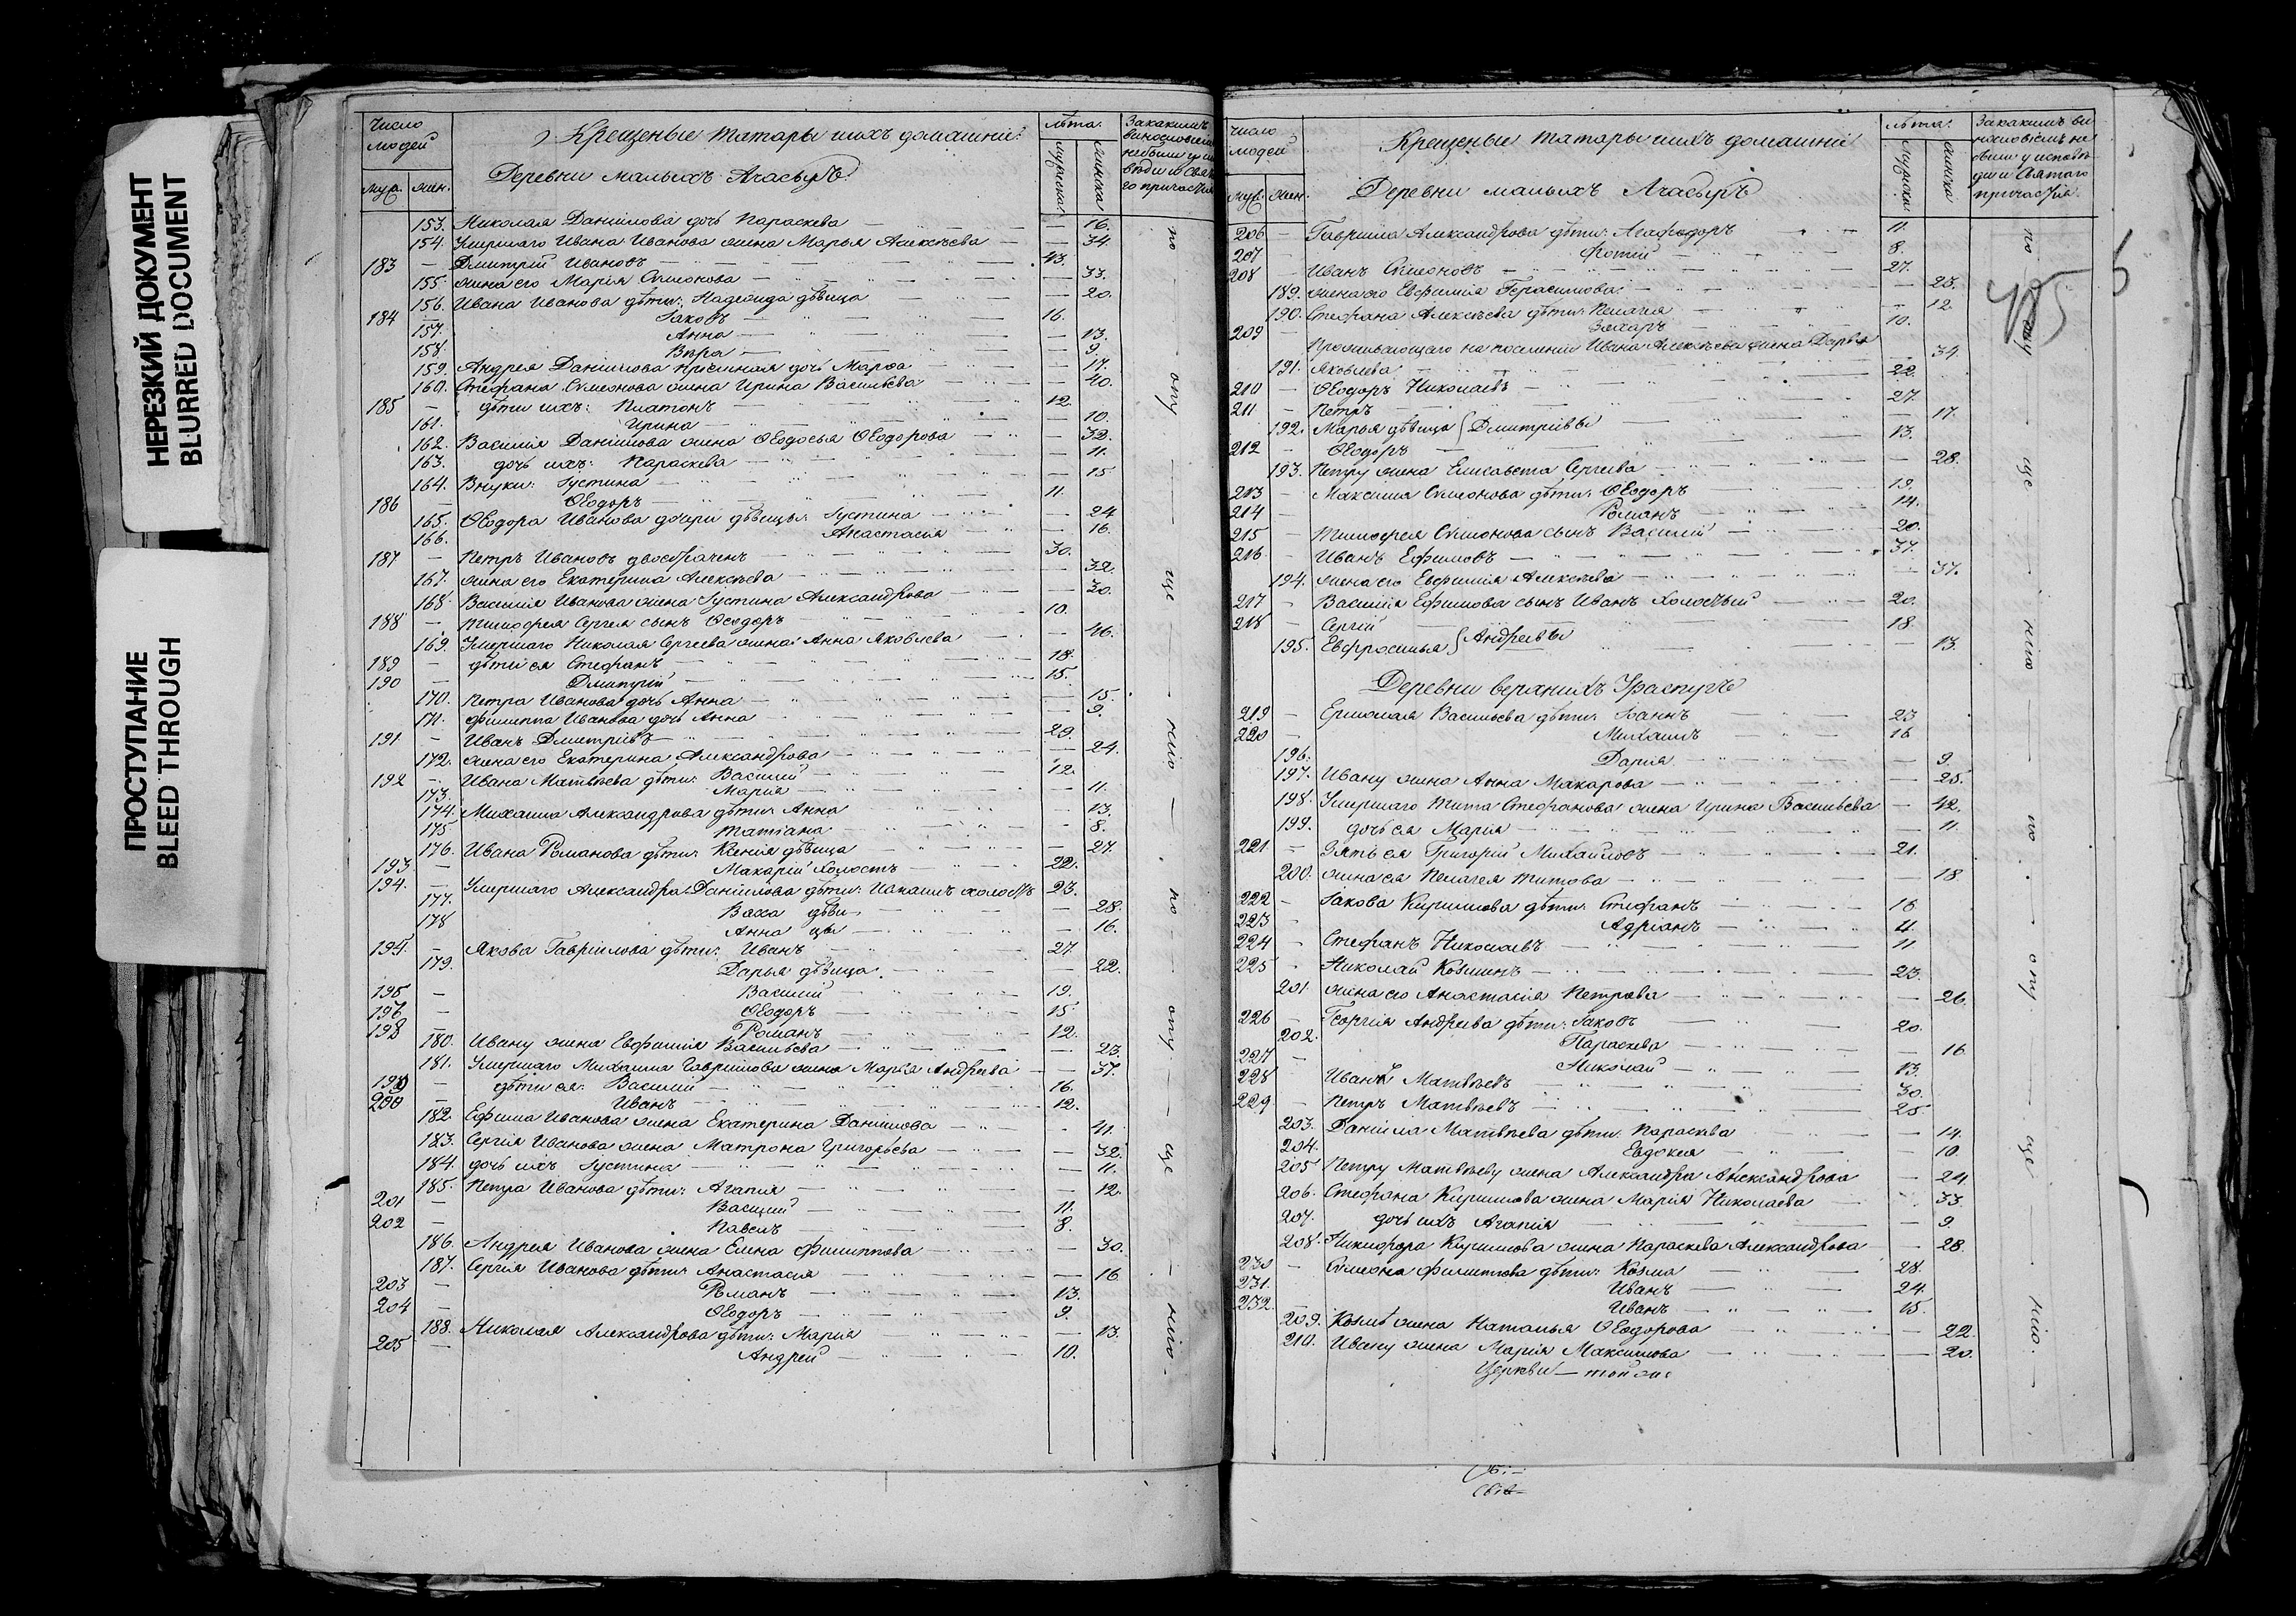 НЕРЕЗКИЙ ДОКУМЕНТ
BLURRED DOCUMENT
ПРОСТУПАНИЕ
BLEED THROUGH
Число людей
Крещеные татары и ихъ домашніи
лѣта
За какимъ винословіемъ не были у исповѣди и Свята го причастія
муж. жен.
Деревни малыхъ Ачасыръ
мужска женска
153. Николая Данилова дочь Параскева — 16.
154. Умершаго Ивана Иванова жена Марья Алексѣева — 34.
183 — Дмитрій Ивановъ — 43.
155. жена его Марія Симеонова — 33.
156. Ивана Иванова дѣти: Надежда дѣвица — 20.
184 — Іаковъ — 16.
157. Анна — 13.
158. Вѣра — 9.
159. Андрея Данилова дочь Марѳа — 17.
160. Стефана Симеонова жена Ирина Васильева — 40.
185 — дѣти ихъ: Платонъ — 12.
161. Ирина — 10.
162. Василія Данилова жена Ѳеодосья Ѳеодорова — 32.
163. дочь ихъ: Параскева — 11.
164. Внуки: Іустина — 15
186 Ѳеодоръ — 11.
165. Ѳеодора Иванова дочери дѣвицы: Іустина — 24
166. Анастасія — 16.
187 — Петръ Ивановъ двоебраченъ — 30.
167. жена его Екатерина Алексѣева — 32.
168. Василія Иванова жена Іустина Александрова — 30.
188 — Тимофея Сергея сынъ Ѳеодоръ — 10.
169. Умершаго Николая Сергеева жена Анна Яковлева — 46.
189 — дѣти ея Стефанъ — 18.
190 — Дмитрій — 15.
170. Петра Иванова дочь Анна — 15.
171. Филиппа Иванова дочь Анна — 9.
191 — Иванъ Дмитріевъ — 29.
172. жена его Екатерина Александрова — 24.
192 — Ивана Матвѣева дѣти: Василій — 12.
173. Марія — 11.
174. Михаила Александрова дѣти: Анна — 13.
175 Татіана — 8.
176. Ивана Романова дѣти: Ксенія дѣвица — 27.
193 — Макарій холостъ — 22.
194. — Умершаго Александра Данилова дѣти: холостъ 23.
177. Васса дѣви — 28.
178 Анна — 16.
194. — Якова Гавриилова дѣти: Иванъ — 27
179. Дарья дѣвица — 22.
195 — Василій — 19.
196 — Ѳеодоръ — 15
198 — Романъ — 12.
180. Ивану жена Евфимія Васильева — 23.
181. Умершаго Михаила Гавриилова жена Марья Андреева — 37.
199 — дѣти ея: Василій — 16.
200 — Иванъ — 12.
182. Ефима Иванова жена Екатерина Данилова — 41.
183. Сергія Иванова жена Матрона Григорьева — 32.
184. дочь ихъ Іустина — 11.
185. Петра Иванова дѣти: Агапія — 12.
201 — Василій — 11.
202 — Павелъ — 8.
186. Андрея Иванова жена Елена Филиппова — 30.
187. Сергія Иванова дѣти: Анастасія — 16
203 — Романъ — 13.
204 — Ѳеодоръ — 9.
188. Николая Александрова дѣти: Марія — 13.
205 — Андрей — 10.
по — ону — ще — нію — по — ону — ще — нію
Число людей
Крещеные татары и ихъ домашніи
лѣта
За какимъ винословіемъ не были у исповѣди и Святаго причастія
муж. жен.
Деревни малыхъ Ачасыръ
мужска женска
206 — Гавриила Александрова дѣти: Агафодоръ — 11.
207 — Фотій — 8.
208 — Иванъ Симеоновъ — 27.
189. жена его Евфимія Герасимова — 23.
190. Стефана Алексѣева дѣти: Пелагея — 12
209 Захаръ — 10.
Проживающаго на поселеніи Ивана Алексѣева жена Дарья
191. Яковлева — 34.
210 — Ѳеодоръ Николаевъ — 22.
211 — Петръ — 27.
192. Марья дѣвица Дмитріевы — 17.
212 — Ѳеодоръ — 13.
193. Петру жена Елисавета Сергеева — 28.
213 — Максима Симеонова дѣти: Ѳеодоръ — 19.
214 — Романъ — 14.
215 — Тимофея Симеонова сынъ Василій — 20.
216 — Иванъ Ефимовъ — 37.
194. жена его Евфимія Алексѣева — 37.
217 — Василія Ефимова сынъ Иванъ холостый — 20.
218 — Сергій — 18.
195. Евфросинья Андреевы — 13.
Деревни верхнихъ
219 — Ермолая Васильева дѣти: Іоаннъ — 23
220 — Михаилъ — 16
196. Дарія — 9.
197. Ивану жена Анна Макарова — 25.
198. Умершаго Тита Стефанова жена Ирина Васильева — 42.
199. дочь ея Марія — 11.
221 — Зять ея Григорій Михайловъ — 21.
200. жена ея Пелагея Титова — 18.
222 — Іакова Кириллова дѣти: Стефанъ — 16
223 — Адріанъ — 11.
224 — Стефанъ Николаевъ — 11
225 Николай Козминъ — 23.
201. жена его Анастасія Петрова — 26.
226 — Георгія Андреева дѣти: Іаковъ — 20.
202. Параскева — 16
227 — Николай — 13.
228 Иванъ Матвѣевъ — 30.
229 — Петръ Матвѣевъ — 25
203. Даніила Матвѣева дѣти: Параскева — 14.
204. Евдокея — 10.
205 Петру Матвѣеву жена Александра Александрова — 24
206. Стефана Кириллова жена Марія Николаева — 33.
207. дочь ихъ Агапія — 9.
208. Никифора Кириллова жена Параскева Александрова — 28.
230 — Симеона Филиппова дѣти: Козма — 28.
231. Иванъ — 24.
232. Иванъ — 15.
209. Козмѣ жена Наталья Ѳеодорова — 22.
210. Ивану жена Марія Максимова — 20.
Церкви — той же
по — ону — ще — нію — по — ону — ще — нію